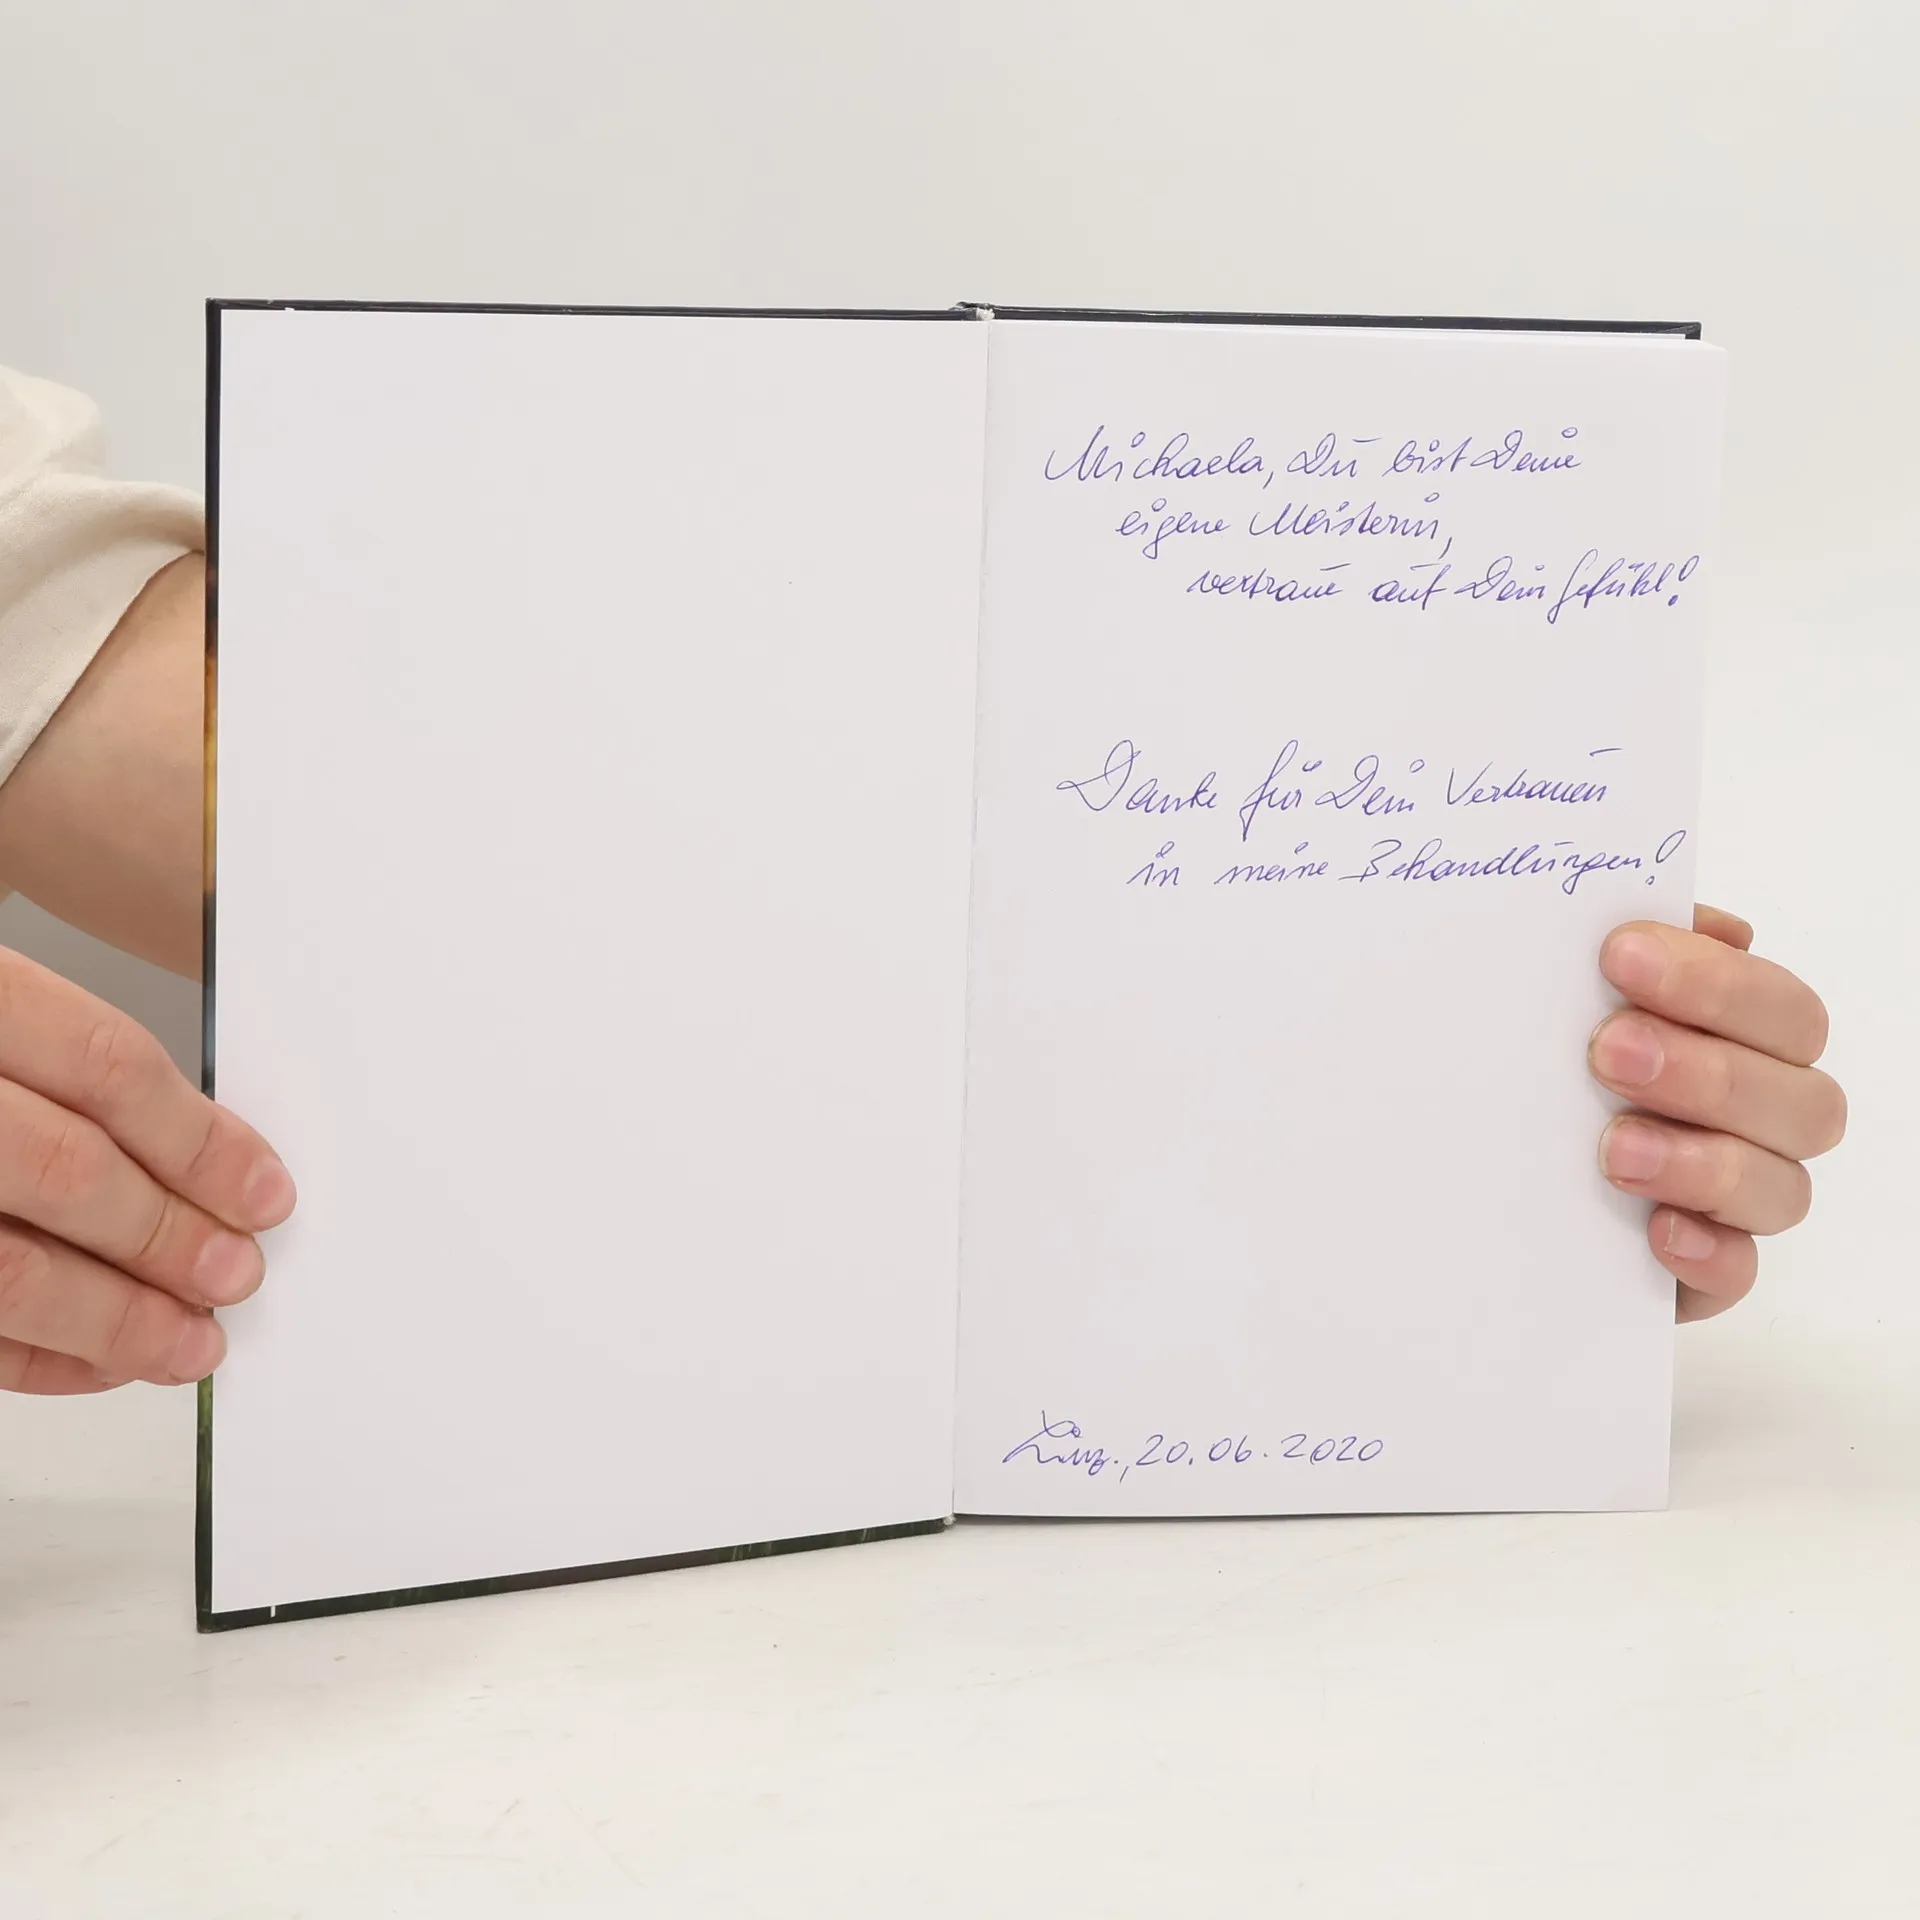 Michaela, Du bist Deine
eigene Meisterin,
vertraue auf Dein Gefühl!
Danke für Dein Vertrauen
in meine Behandlungen!
Linz., 20.06.2020